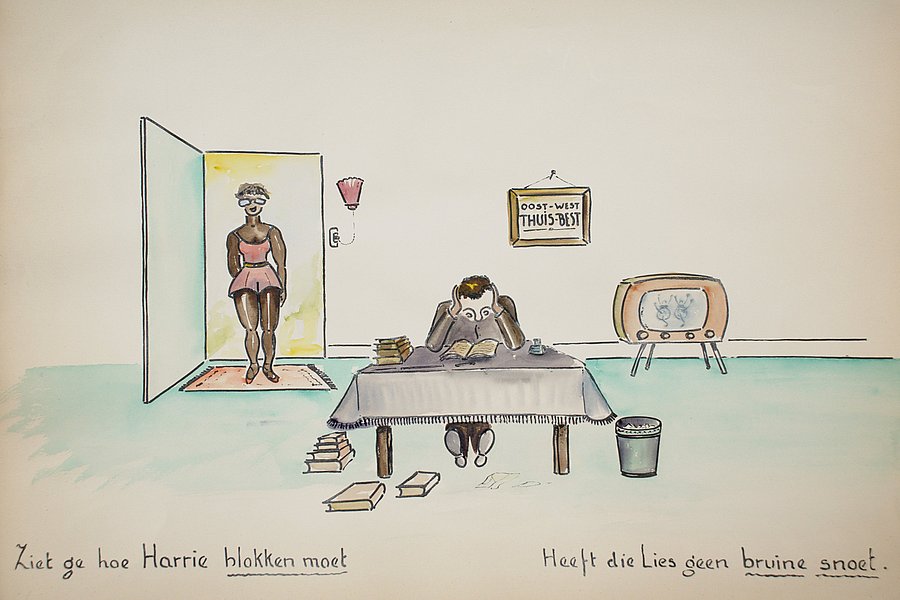 OOST-WEST
THUIS-BEST
Ziet ge hoe Harrie blokken moet
Heeft die Lies geen bruine snoet.